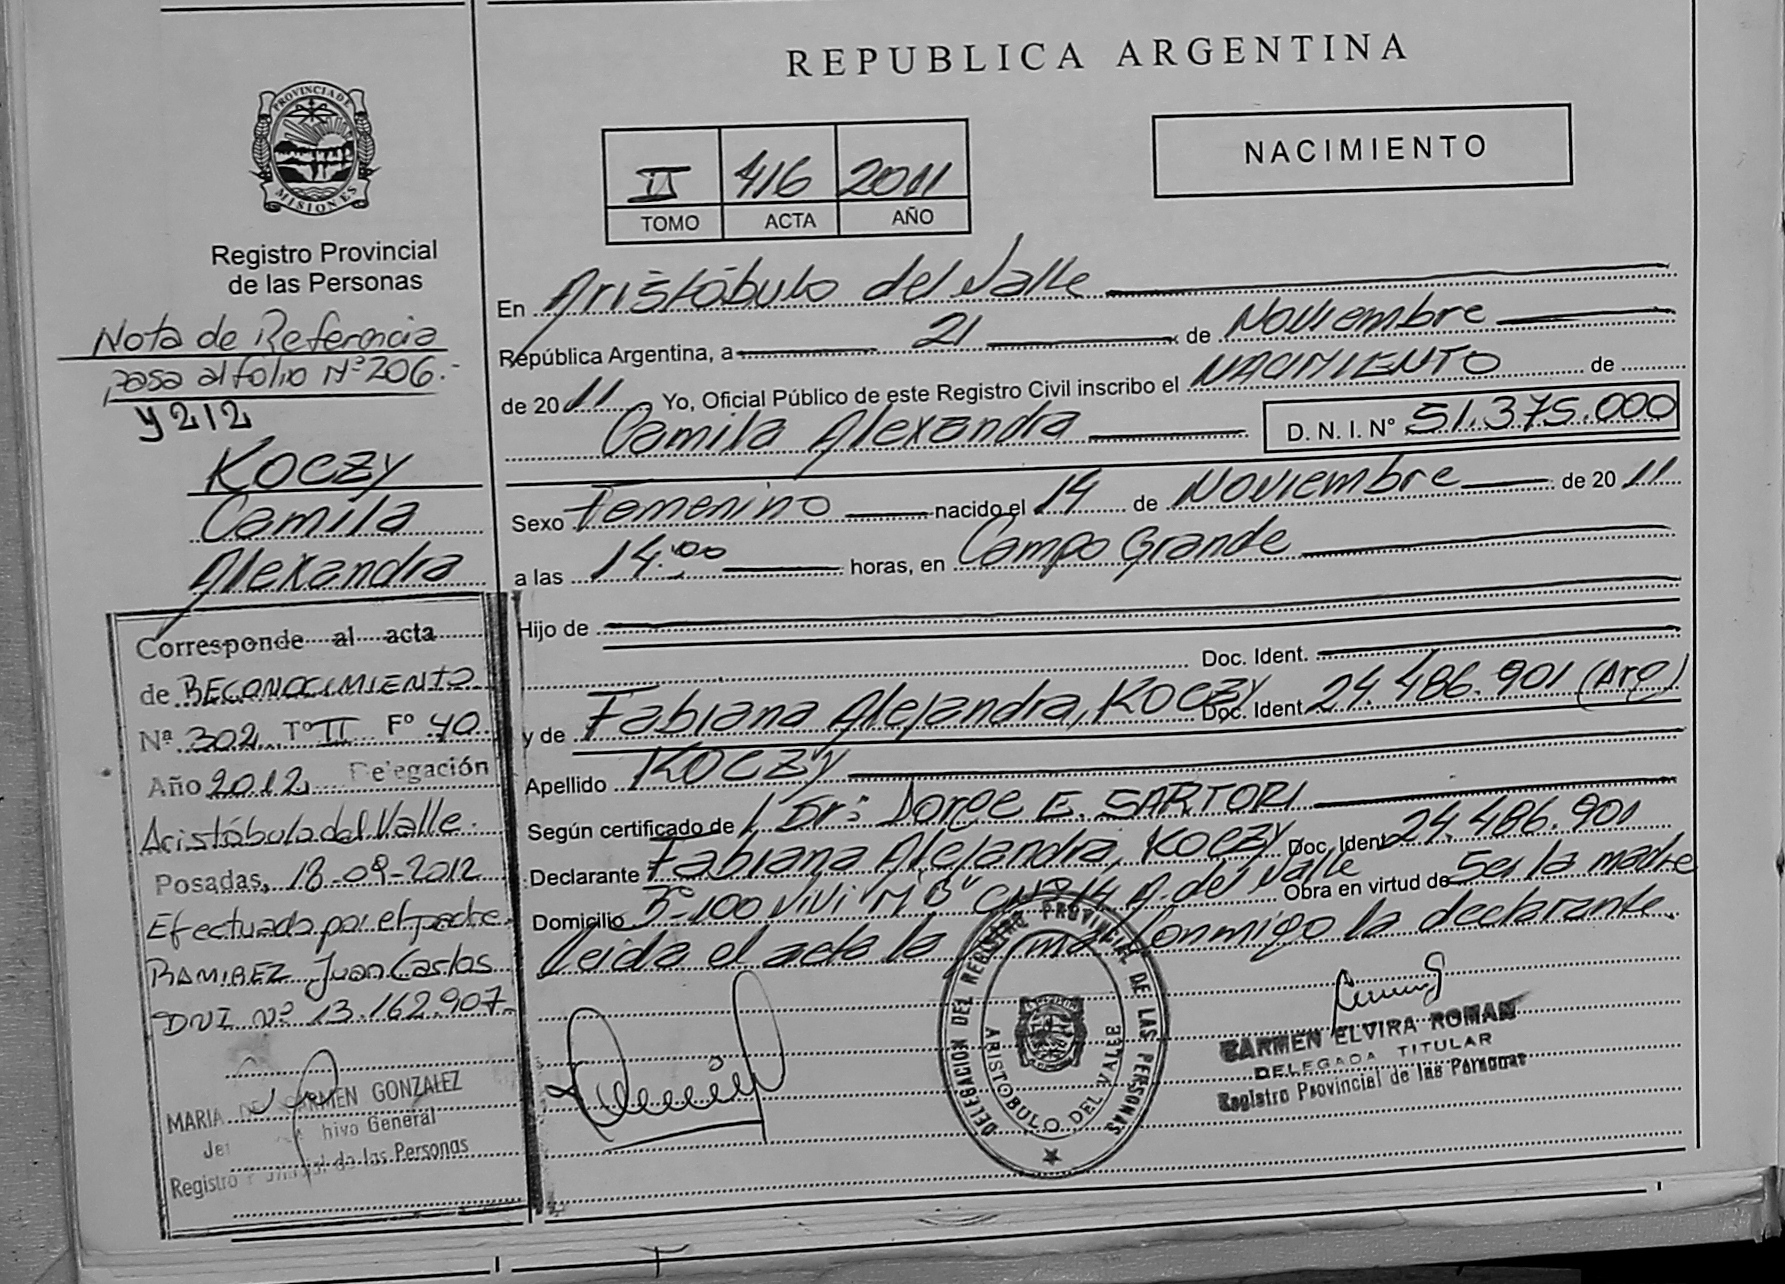 PROVINCIA DE
MISIONES
Registro Provincial
de las Personas
Nota de Referencia
pasa al folio Nº 206.-
y 212
KOCZY
Camila
Alexandra
Corresponde al acta
de RECONOCIMIENTO
Nª 302 Tº II Fº 40
Año 2012 Delegación
Aristóbulo del Valle.
Posadas, 18-09-2012
Efectuado por el padre
RAMIREZ Juan Carlos
DNI Nº 13.162.907-
MARIA DEL CARMEN GONZALEZ
hivo General
Registro Provincial de las Personas
REPUBLICA ARGENTINA
NACIMIENTO
II 416 2011
TOMO ACTA AÑO
En Aristóbulo del Valle
República Argentina, a 21 de Noviembre
de 2011 Yo, Oficial Público de este Registro Civil inscribo el NACIMIENTO de
Camila Alexandra D. N. I. N° 51.375.000
Sexo Femenino nacido el 14 de Noviembre de 2011
a las 14:00 horas, en Campo Grande
Hijo de
Doc. Ident.
y de Fabiana Alejandra, KOCZY Doc. Ident. 24.486.901 (Arg)
Apellido KOCZY
Según certificado de / Dr: Jorge E. SARTORI
Declarante Fabiana Alejandra, KOCZY Doc. Ident 24.486.901
Domicilio 3º-100 VIVI "M B" C Nº 14 A. del Valle Obra en virtud de Ser la madre
Leida el acta la firma Conmigo la declarante.
DELEGACION DEL REGISTRO PROVINCIAL DE LAS PERSONAS
ARISTOBULO DEL VALLE
CARMEN ELVIRA ROMAN
DELEGADA TITULAR
Registro Provincial de las Personas